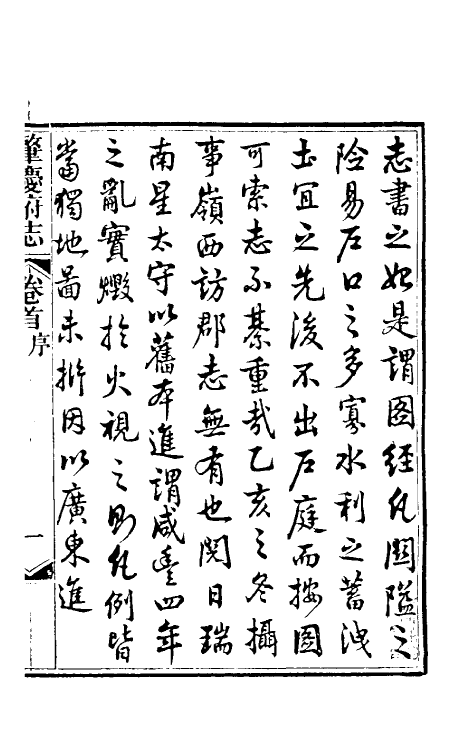 志書之始是謂圖經凡關隘之
險易戶口之多寡水利之蓄洩
土宜之先後不出戶庭而按圖
可索志不綦重哉乙亥之冬攝
事嶺西訪郡志無有也閱日瑞
南星太守以舊本進謂咸豐四年
之亂實燬於火視之則凡例皆
當獨地圖未
因以廣東進
肇慶府志
卷首序
一